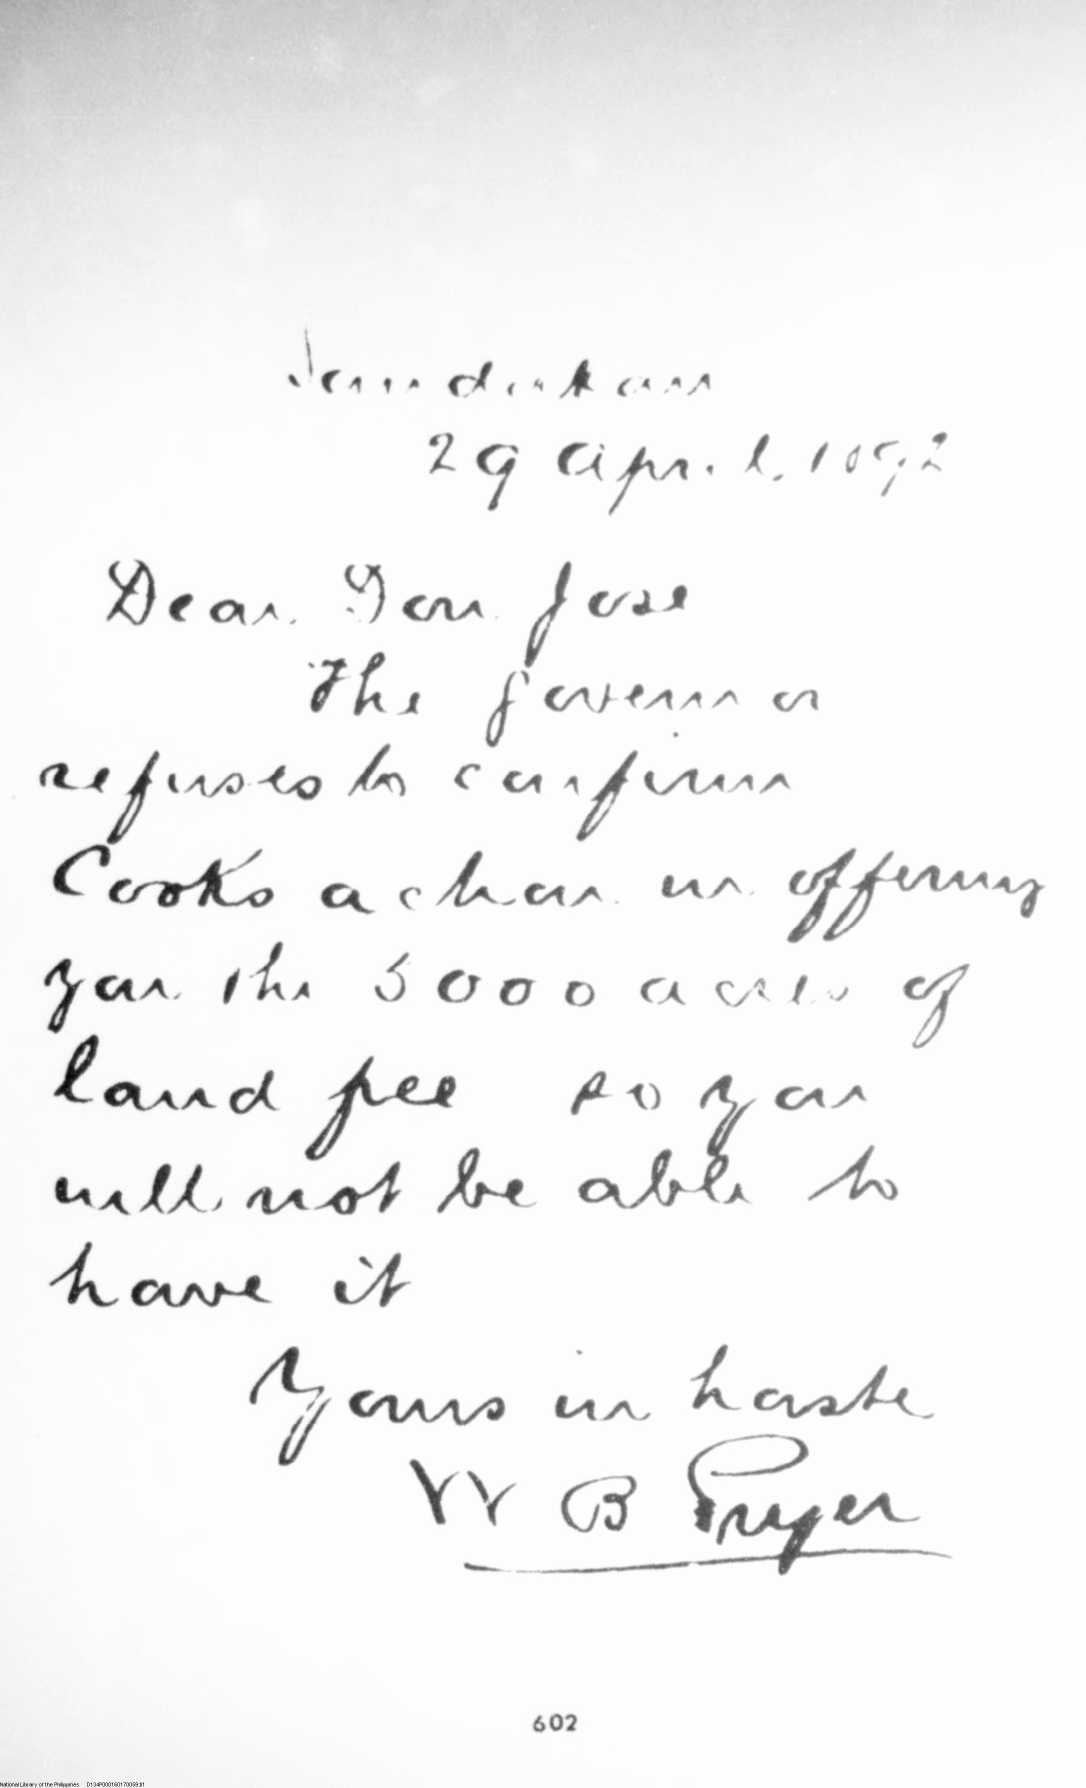 Sandakan
29 April. 1892
Dear Don Jose
The Governor
refuses to confirm
Cooks action in offering
you the 5000 acres of
land free so you
will not be able to
have it
Yours in haste
W B Pryer
602
National Library of the Philippines D134P000160170059.tif